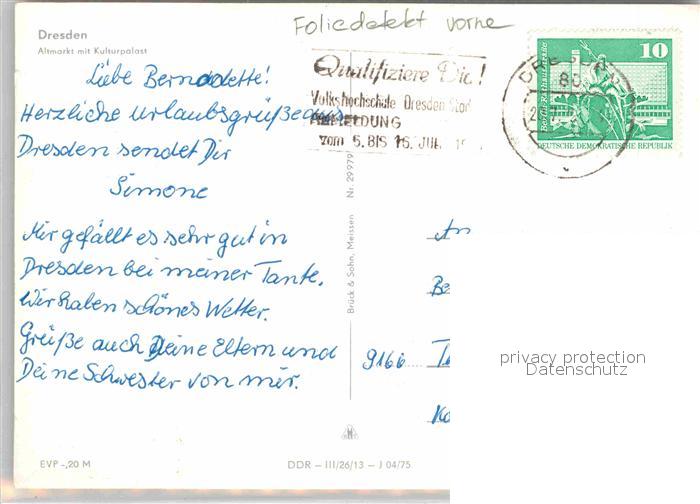 Foliedefekt vorne
Dresden
Altmarkt mit Kulturpalast
Liebe Bernadette!
Herzliche Urlaubsgrüße aus
Dresden sendet Dir
Simone
Mir gefällt es sehr gut in
Dresden bei meiner Tante.
Wir haben schönes Wetter.
Grüße auch Deine Eltern und
Deine Schwester von mir.
EVP -,20 M
DDR – III/26/13 – J 04/75
Brück & Sohn, Meissen Nr. 29979
Qualifiziere Dich!
Volkshochschule Dresden
ANMELDUNG
vom 5. BIS 16. JULI
10
DEUTSCHE DEMOKRATISCHE REPUBLIK
An
Be
9166
privacy protection
Datenschutz